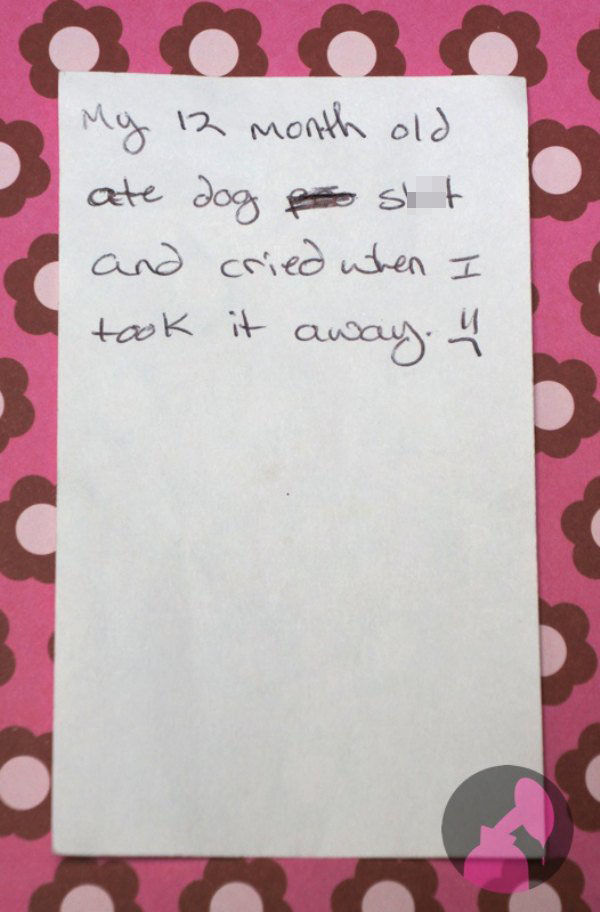 My 12 month old
ate dog st
and cried when I
took it away. :(